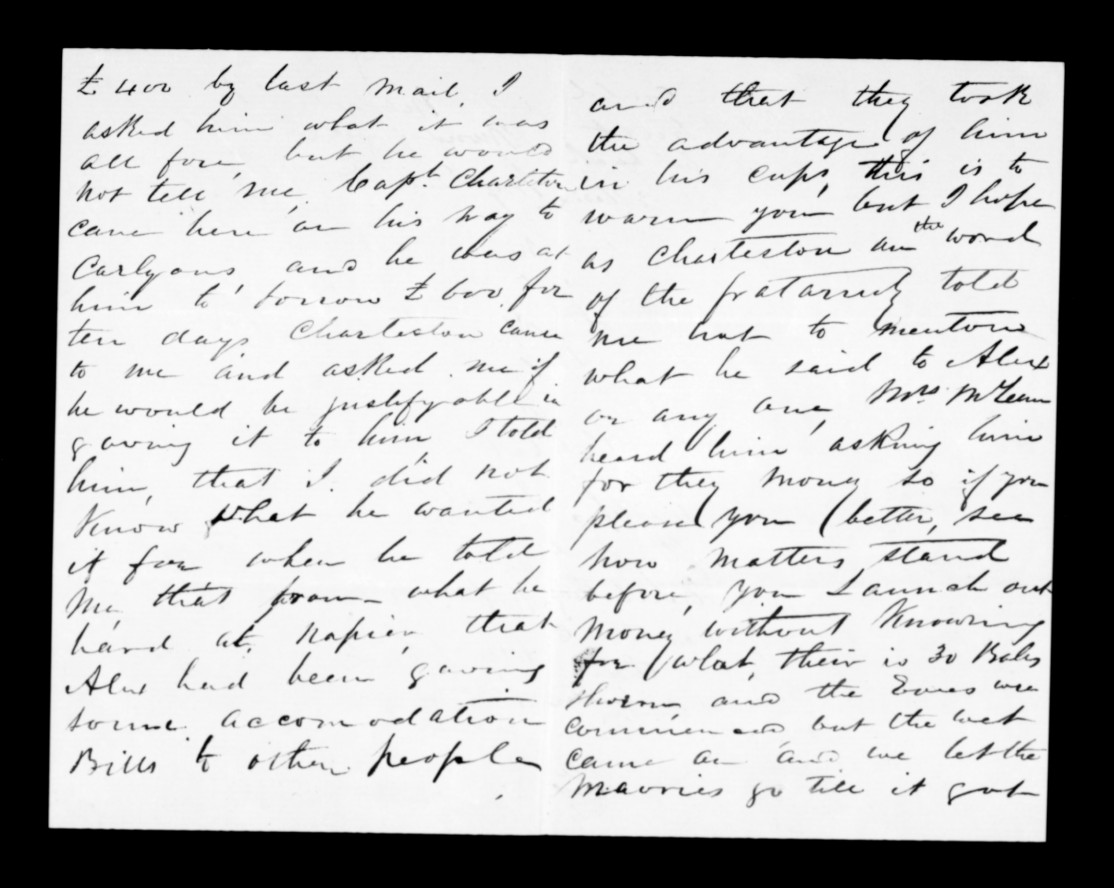 £400 by last mail, I
asked him what it was
all fore, but he would
not tell me, Capt. Charleton
came here on his way to
Carlyons and he was at
him to borrow £600 for
ten days Charleston came
to me and asked me if
he would be justifyable in
gaving it to him, I told
him, that I did not
Know what he wanted
it for when he told
me, that from what he
hard at Napier, that
Alex had been gaving
some accomodation
Bills to other people
and that they took
the advantage of him
in his cups, this is to
warn you but I hope
as Charleston on the word
of the told
me not to mention
what he said to Alex
or any one, Mrs. McLean
heard him asking him
for they money so if you
please you better, see
how matters stand
before, you Launch out
money without Knowing
for what, their is 30 Bales
shorn, and the Ewes wer
commenced, but the wet
came on and we let the
Maories go till it got